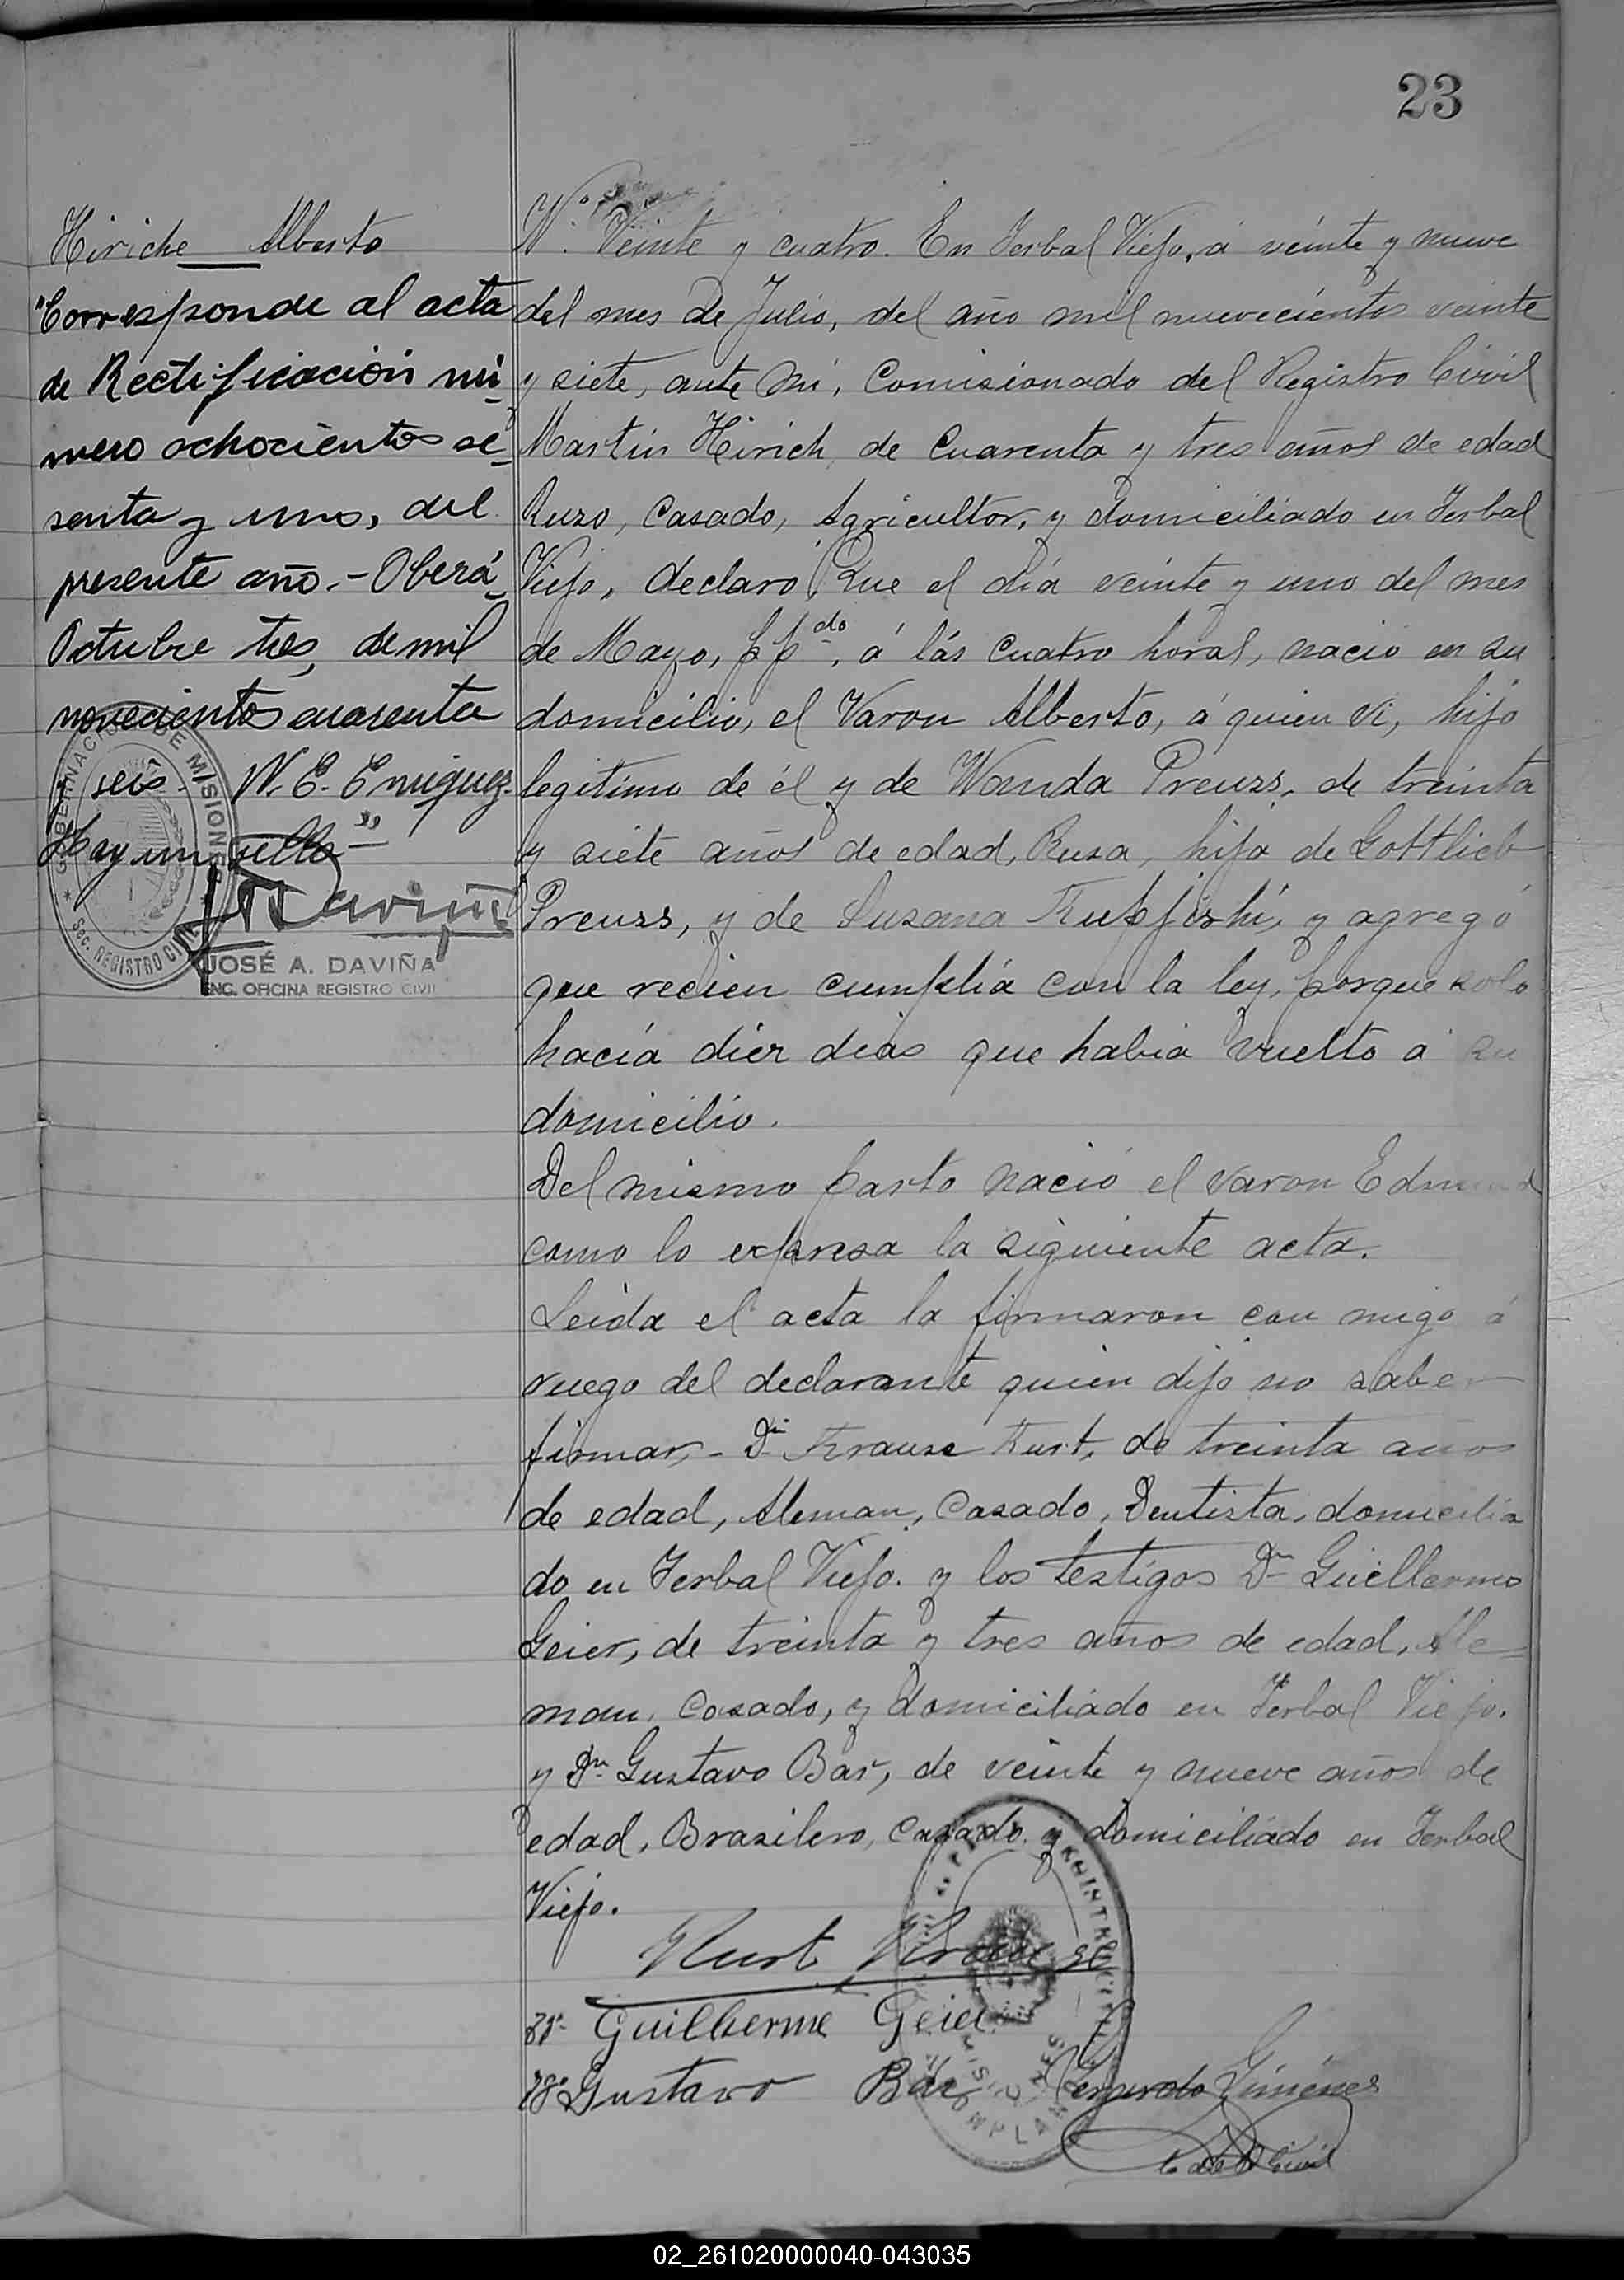 23
Hiriche Alberto
"Corresponde al acta
de Rectificación nú-
mero ochocientos se-
senta y uno, del
presente año.- Oberá,
Octubre tres, de mil
novecientos cuarenta
y seis. N. E. Eniquez."
Hay un sello
GOBERNACION DE MISIONES
Sec. REGISTRO CIVIL
JOSÉ A. DAVIÑA
ENC. OFICINA REGISTRO CIVIL
Nº. Veinte y cuatro. En Yerbal Viejo, á veinte y nueve
del mes de Julio, del año mil nuevecientos veinte
y siete, ante mí, Comisionado del Registro Civil
Martin Hirich, de Cuarenta y tres años de edad
Ruso, Casado, Agricultor, y domiciliado en Yerbal
Viejo, declaro: Que el día veinte y uno del mes
de Mayo, ppdo, á lás cuatro horas, nació en su
domicilio, el Varon Alberto, á quien vi, hijo
legitimo de él y de Wanda Preuss, de treinta
y siete años de edad, Rusa, hija de Gottlieb
Preuss, y de Susana y agregó
que recien cumplía con la ley, porque solo
hacía diez dias que habia vuelto a su
domicilio.
Del mismo parto nació el varon Edmund
como lo expresa la siguiente acta.
Leida el acta la firmaron con migo á
ruego del declarante quien dijo no saber
firmar,- Dn Krause Kurt, de treinta anos
de edad, Aleman, Casado, Dentista, domicilia
do en Yerbal Viejo. y los testigos Dn Guillermo
Geier, de treinta y tres años de edad, Ale-
man, Casado, y domiciliado en Yerbal Viejo.
y Dn Gustavo Bar, de veinte y nueve años de
edad, Brasilero, Casado, y domiciliado en Yerbal
Viejo.
Kurt Krause
Guilherme Geier
Gustavo Bär Gerardo Giménez
C. del R. Civil
02_261020000040-043035